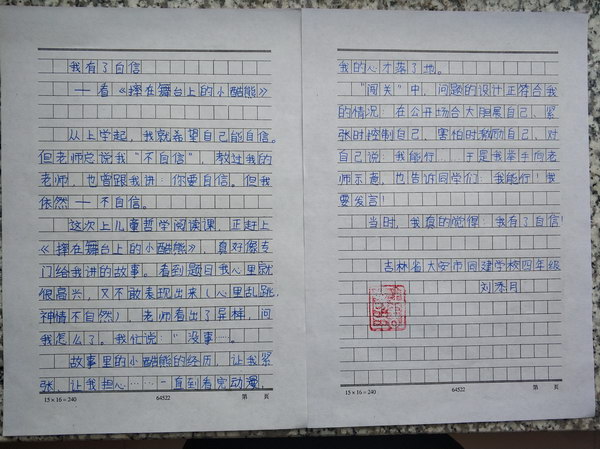 我有了自信
—看《摔在舞台上的小酷熊》
从上学起，我就希望自己能自信。
但老师总说我“不自信”，教过我的
老师，也曾跟我讲：你要自信。但我
依然一不自信。
这次上儿童哲学阅读课，正赶上
《摔在舞台上的小酷熊》，真好像专
门给我讲的故事。看到题目我心里就
很高兴，又不敢表现出来（心里乱跳，
神情不自然），老师看出了异样，问
我怎么了。我忙说：“没事…。
故事里的小酷熊的经历，让我紧
张，让我担心……一直到看完动漫，
15×16=240 64522 第 页
我的心才落了地。
“闯关”中，问题的设计正符合我
的情况，在公开场合大胆展自己，紧
张时控制自己，害怕时激励自己，对
自己说：我能行。于是我举手向老
师示意，也告诉同学们：我能行！我
要发言！
当时，我真的觉得：我有了自信！
吉林省大安市同建学校四年级
刘秀月
15×16=240 64522 第 页